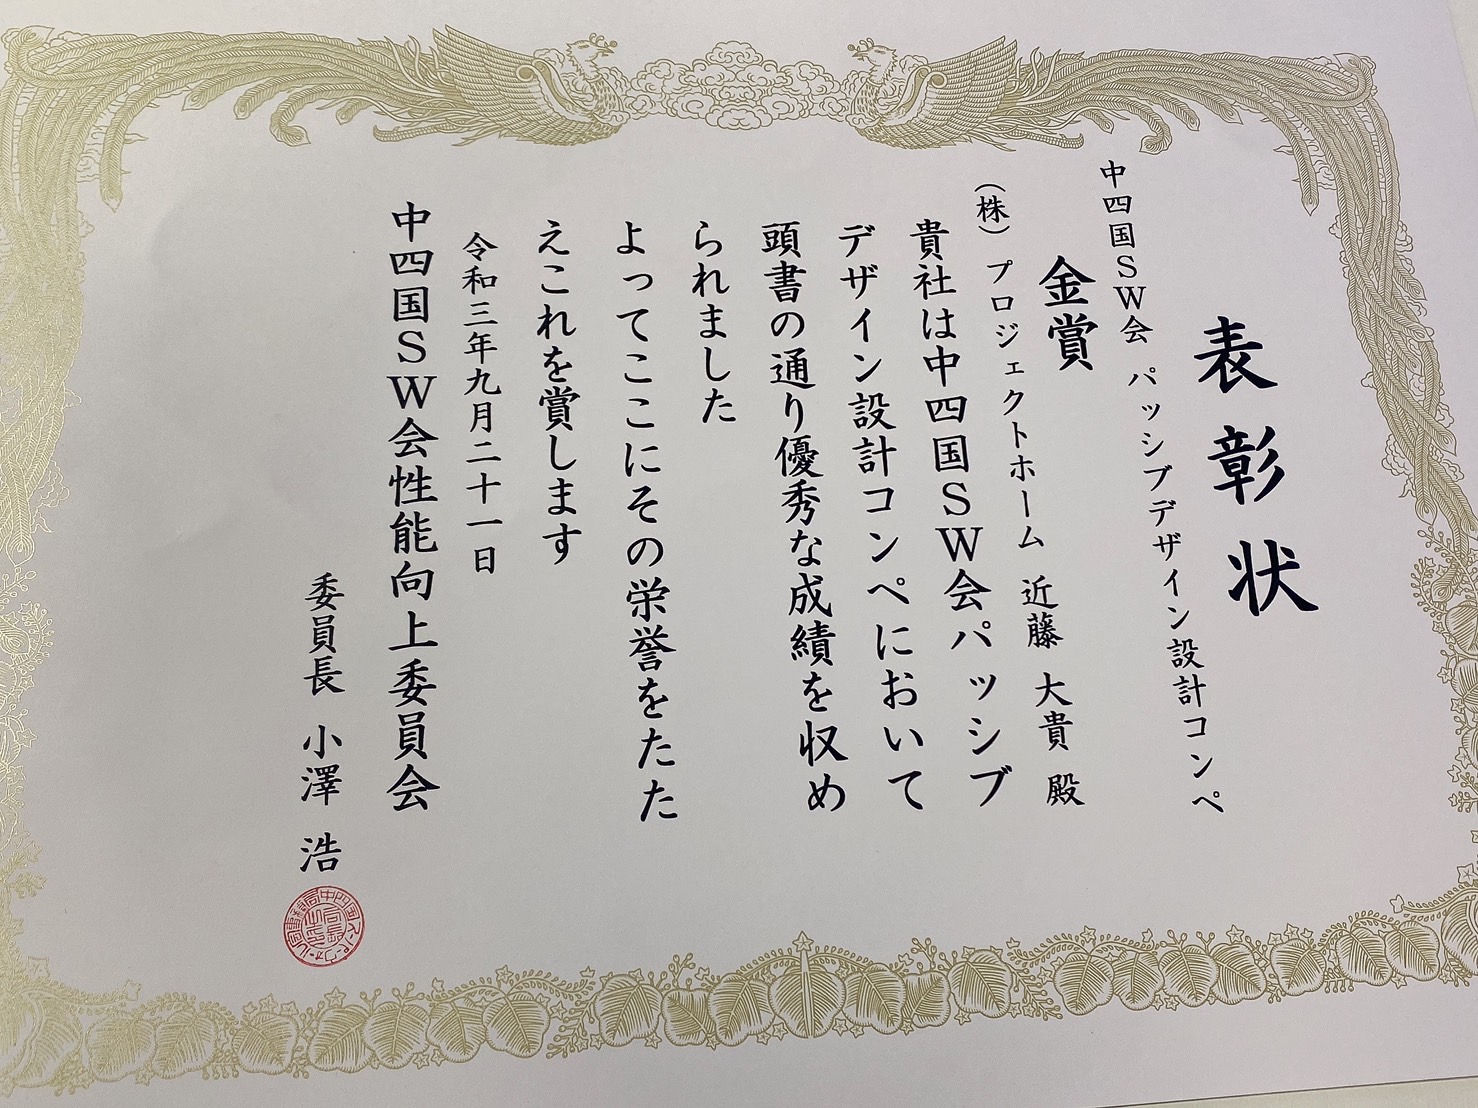 表彰状
中四国SW会 パッシブデザイン設計コンペ
金賞
(株)プロジェクトホーム 近藤 大貴 殿
貴社は中四国SW会パッシブ
デザイン設計コンペにおいて
頭書の通り優秀な成績を収め
られました
よってここにその栄誉をたた
えこれを賞します
令和三年九月二十一日
中四国SW会性能向上委員会
委員長 小澤 浩